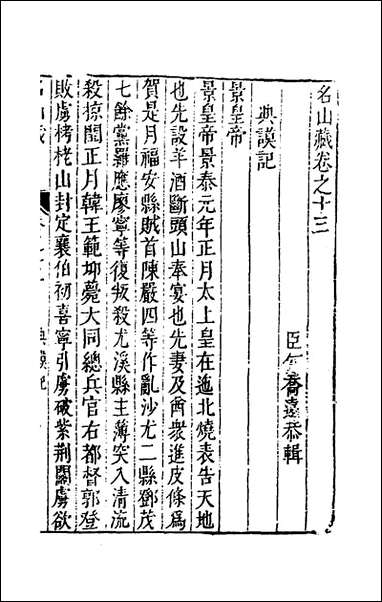 名山藏卷之十三
臣何喬遠恭輯
典謨記
景皇帝
景皇帝景泰元年正月太上皇在迤北燒表告天地
也先設羊酒斷頭山奉宴也先妻及酋衆進皮條爲
賀是月福安縣賊首陳嚴四等作亂沙尤二縣鄧茂
七餘黨羅應廖寧等復叛殺尤溪縣主薄突入清流
殺掠閏正月韓王範𡊠薨大同總兵官右都督郭登
敗虜栲栳山封定襄伯初喜寧引虜破紫荆關虜欲
典謨記